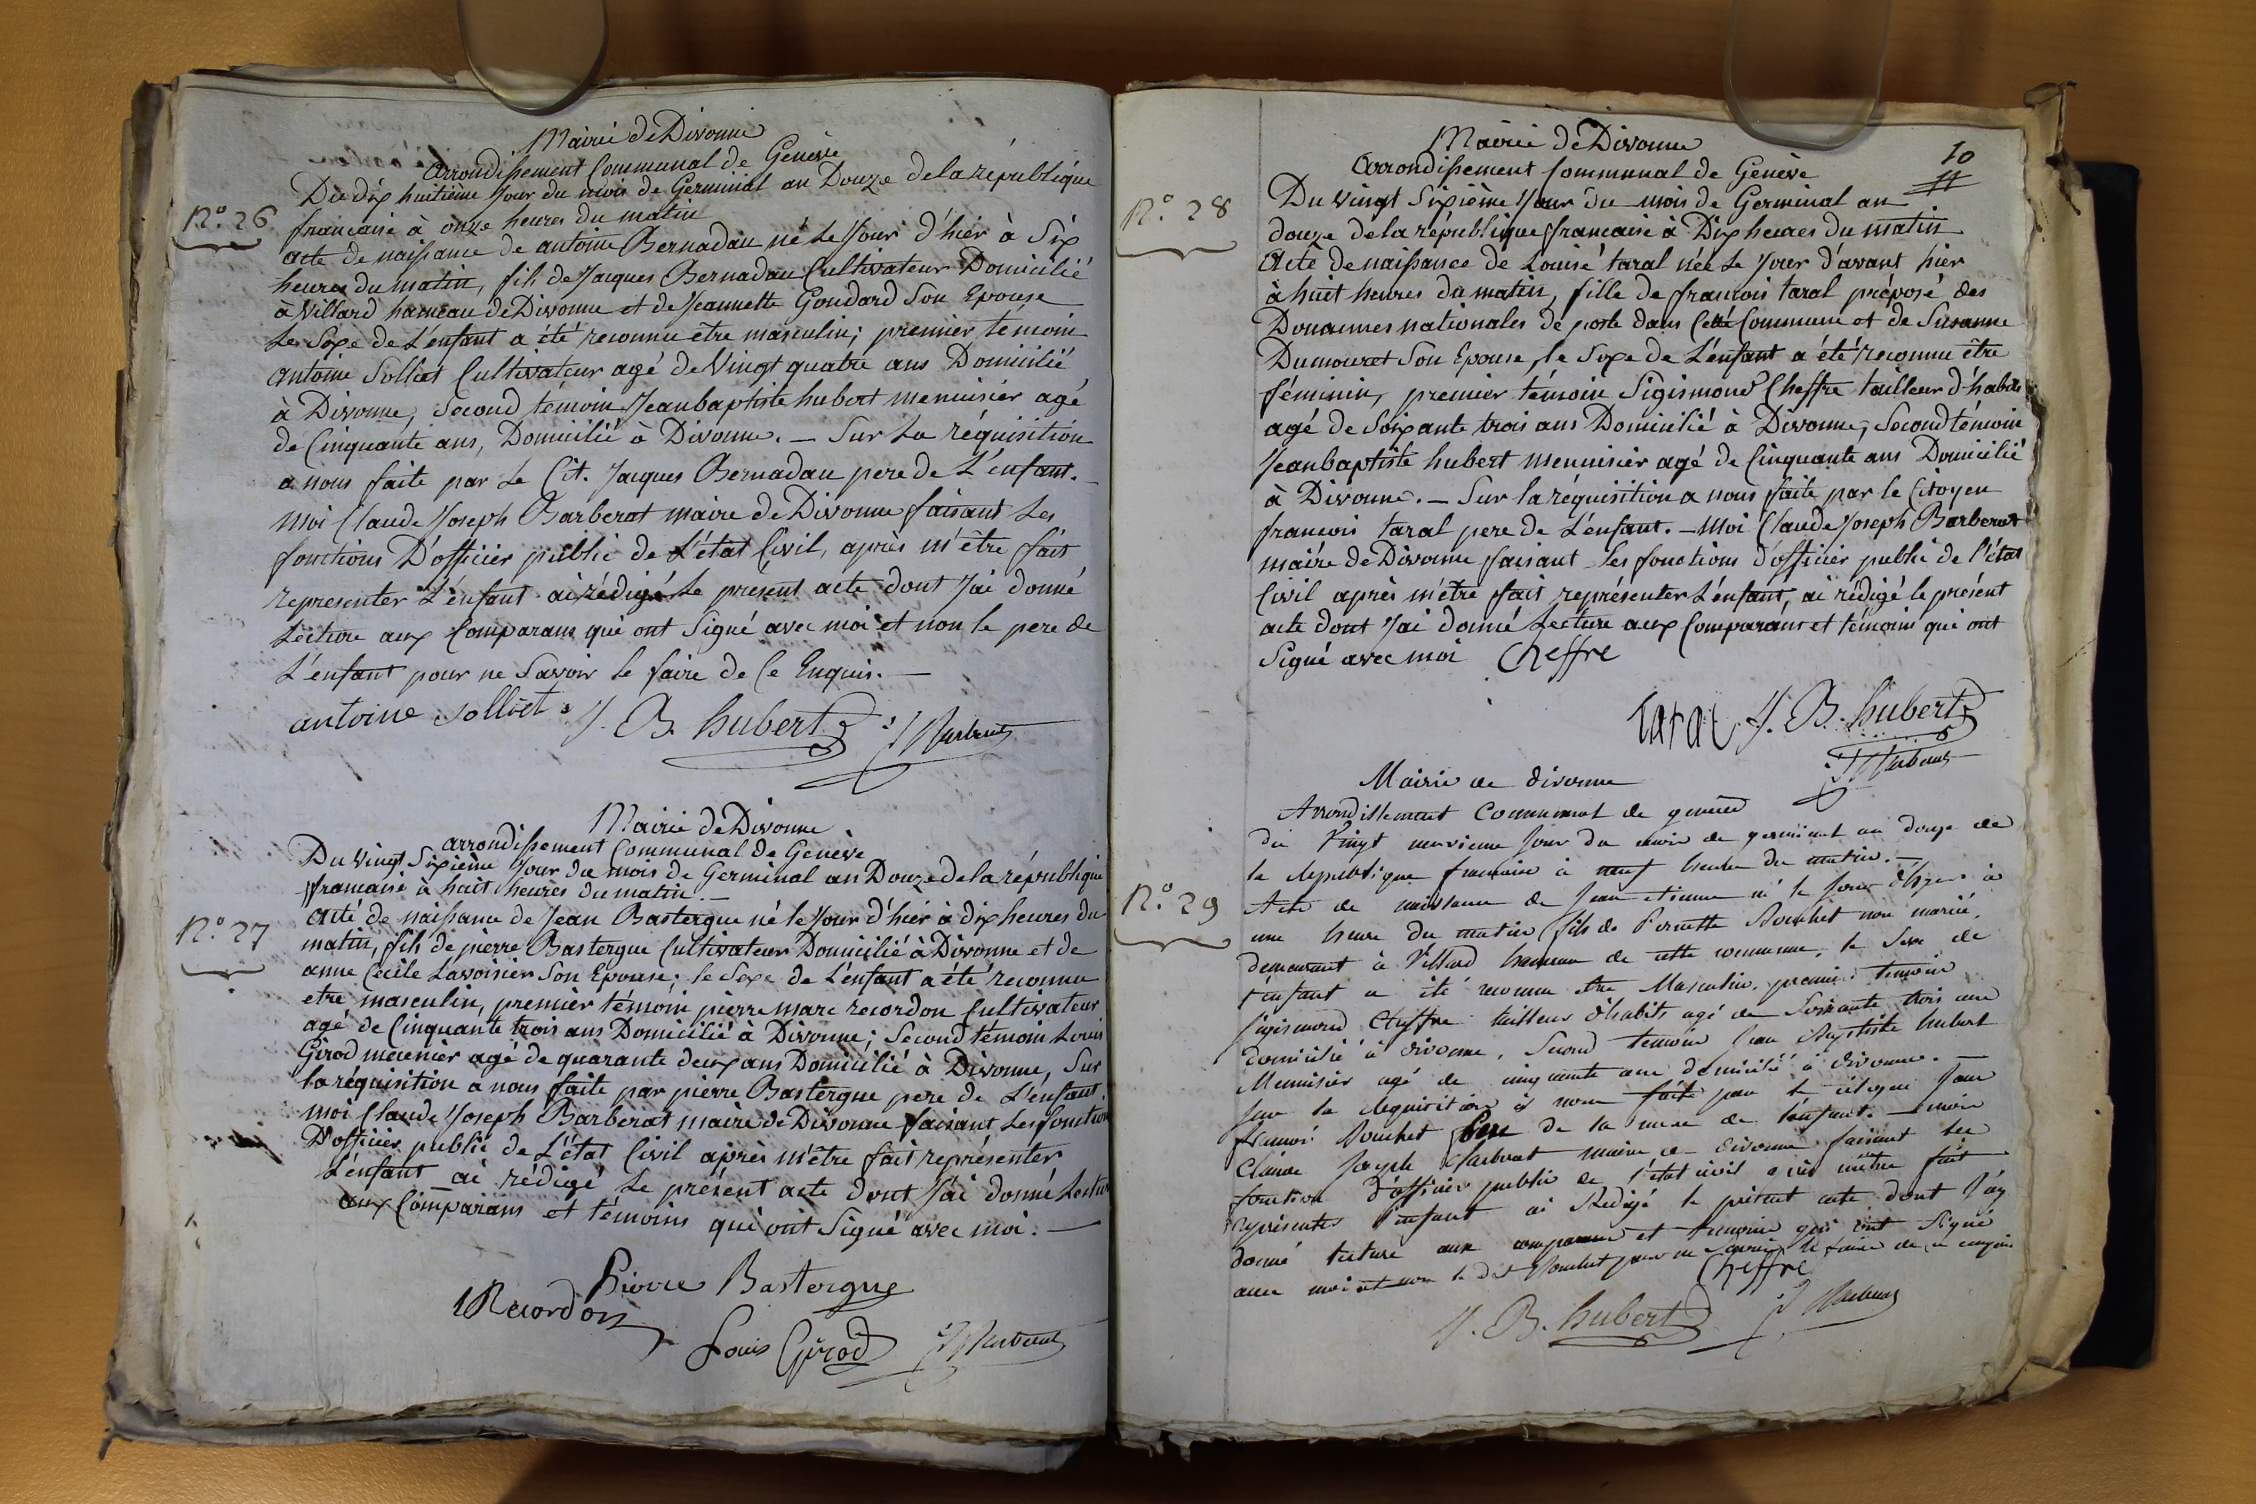 Mairie de Divonne
arrondissement Communal de Genève
Du dix huitième Jour du mois de Germinal an Douze de la république
N.° 26
francaise à onze heures du matin
acte de naissance de antoine Bernadau né Le Jour d'hier à Six
heures du matin, fils de Jacques Bernadau Cultivateur Domicilié
à Villard hameau de Divonne et de Jeannette Goudard Son Epouse
Le Sexe de L'enfant a été reconnu être masculin; premier témoin
antoine Solliet Cultivateur agé de Vingt quatre ans Domicilié
à Divonne, Second témoin Jeanbaptiste hubert menuisier agé
de Cinquante ans, Domicilié à Divonne. — Sur La réquisition
a nous faite par Le Cit. Jacques Bernadau pere de L'enfant. —
Moi Claude Joseph Barberat maire de Divonne faisant Les
fonctions D'officier public de L'état Civil, après m'être fait
representer L'énfant ai rédigé Le present acte dont J'ai donné
Lecture aux Comparans qui ont Signé avec moi et non le pere de
L'énfant pour ne Savoir le faire de Ce Enquis. —
antoine Solliet J. B. hubert
Mairie de Divonne
arrondissement Communal de Genève
Du vingt Sixième Jour du mois de Germinal an Douze de la république
francaise à huit heures du matin. —
N.° 27
acté de naissance de Jean Bastergue né le Jour d'hier à dix heures du
matin, fils de pierre Bastergue Cultivateur Domicilié à Divonne et de
anne Cécile Lavoisier Son Epouse; le Sexe de L'enfant a été reconnu
etre masculin, premier témoin pierre marc recordon Cultivateur
agé de Cinquante trois ans Domicilié à Divonne; Second témoin Louis
Girod meunier agé de quarante deux ans Domicilié à Divonne, Sur
la réquisition a nous faite par pierre Bastergue pere de L'énfant.
moi Claude Joseph Barberat maire de Divonne faisant Les fonctions
D'officier public de L'état Civil après m'être fait représenter
L'énfant ai rédigé Le présent acte dont J'ai donné Lecture
aux Comparans et témoins qui ont Signé avec moi. —
Pierre Bastergue
Recordon
Louis Girod
10
11
Mairie de Divonne
arrondissement Communal de Genève
Du vingt Sixième Jour du mois de Germinal an
N.° 28
douze de la république francaise à Dix heures du matin
acte de naissance de Louise taral née Le Jour d'avant hier
à huit heures du matin, fille de francois taral préposé des
Douannes nationales de poste dans Cette Commune et de Susanne
Dumouret Son Epouse, le Sexe de L'énfant a été reconnu être
féminin, premier témoin Sigismond Cheffre tailleur d'habits
agé de Soixante trois ans Domicilié à Divonne, Second témoin
Jeanbaptiste hubert menuisier agé de Cinquante ans Domicilié
à Divonne. — Sur la réquisition a nous faite par le Citoyen
francois taral pere de L'énfant. — Moi Claude Joseph Barberat
maire de Divonne faisant les fonctions d'officier public de l'état
Civil après m'être fait représenter L'énfant, ai rédigé le présent
acte dont J'ai donné Lecture aux Comparans et témoins qui ont
Signé avec moi Cheffre
taral J. B. hubert
Mairie de divonne
Arrondissement Communal de
du Vingt neuvieme Jour du mois de germinal an douze de
la République francaise à neuf heures du matin. —
N.° 29
Acte de naissance de Jean etienne né le Jour d'hyer à
une heure du matin fils de Pernette Bouchet non mariée,
demeurant à Villard hameau de cette commune, le Sexe de
l'enfant a été reconnu etre Masculin. premier temoin
Sigismond Cheffre tailleur d'habits agé de Soixante trois ans
domicilié à divonne, Second temoin Jean Baptiste hubert
Menuisier agé de cinquante ans domicilié à divonne. —
Sur la Requisition à nous faite par le citoyen Jean
Bouchet Pere de la mere de l'enfant. — moi
Claude Joseph Barberat maire de divonne faisant les
fonctions D'officier public de l'état civil après m'etre fait
représenter l'enfant ai Redigé le présent acte dont J'ay
donné lecture aux comparans et temoins qui ont Signé
avec moi et non le dit Bouchet pour ne Savoir le faire de ce enquis
Cheffre
J. B. hubert